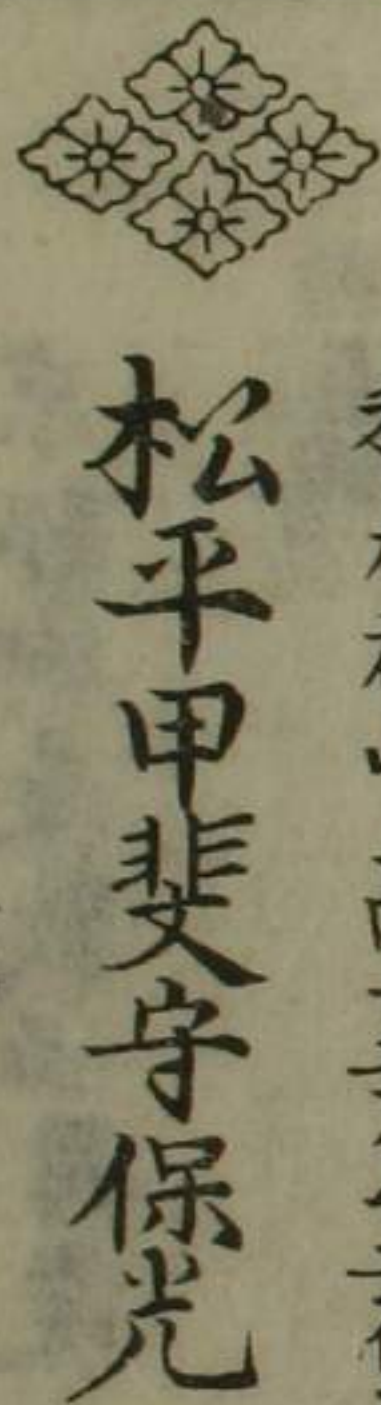 松平甲斐守保光